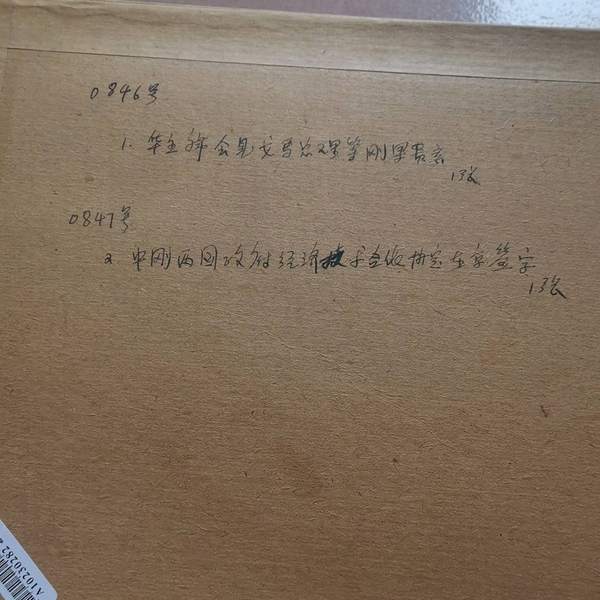 0846号
1. 华主席会见戈马总理等刚果贵宾
1张
0847号
2 中刚两国政府经济技术合作协定在京签字
1张
A10230282 2